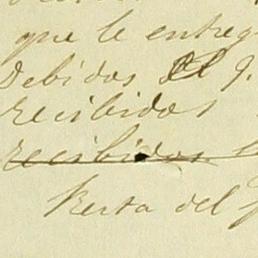 que le entreg
Debidos
recibidos
recibidos
Resta del